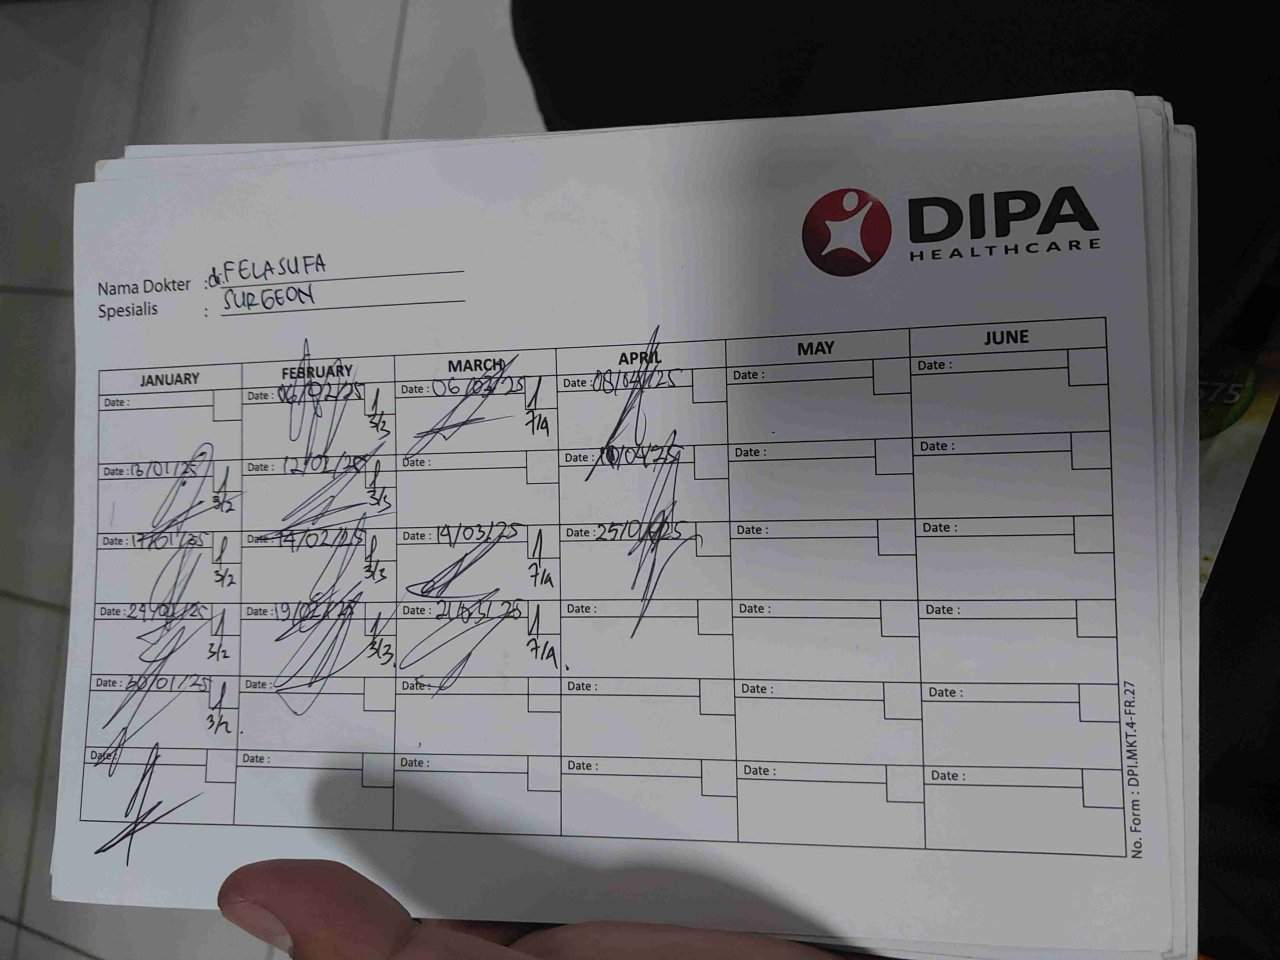 DIPA
HEALTHCARE
Nama Dokter : dr. FELASUFA
Spesialis : SURGEON
JANUARY FEBRUARY MARCH APRIL MAY JUNE
Date : Date : 06/02/25 Date : 06/03/25 Date : 08/04/25 Date : Date :
3/3 7/4
Date : 13/01/25 Date : 12/02/25 Date : Date : 10/04/25 Date : Date :
3/2 3/3
Date : 17/01/25 Date : 14/02/25 Date : 14/03/25 Date : Date : Date :
3/2 3/3 7/4
Date : Date : 19/02/25 Date : 21/03/25 Date : Date : Date :
3/2 3/3 7/4
Date : 30/01/25 Date : Date : Date : Date : Date :
3/2
Date : Date : Date : Date : Date : Date :
No. Form : DPI.MKT.4-FR.27
575